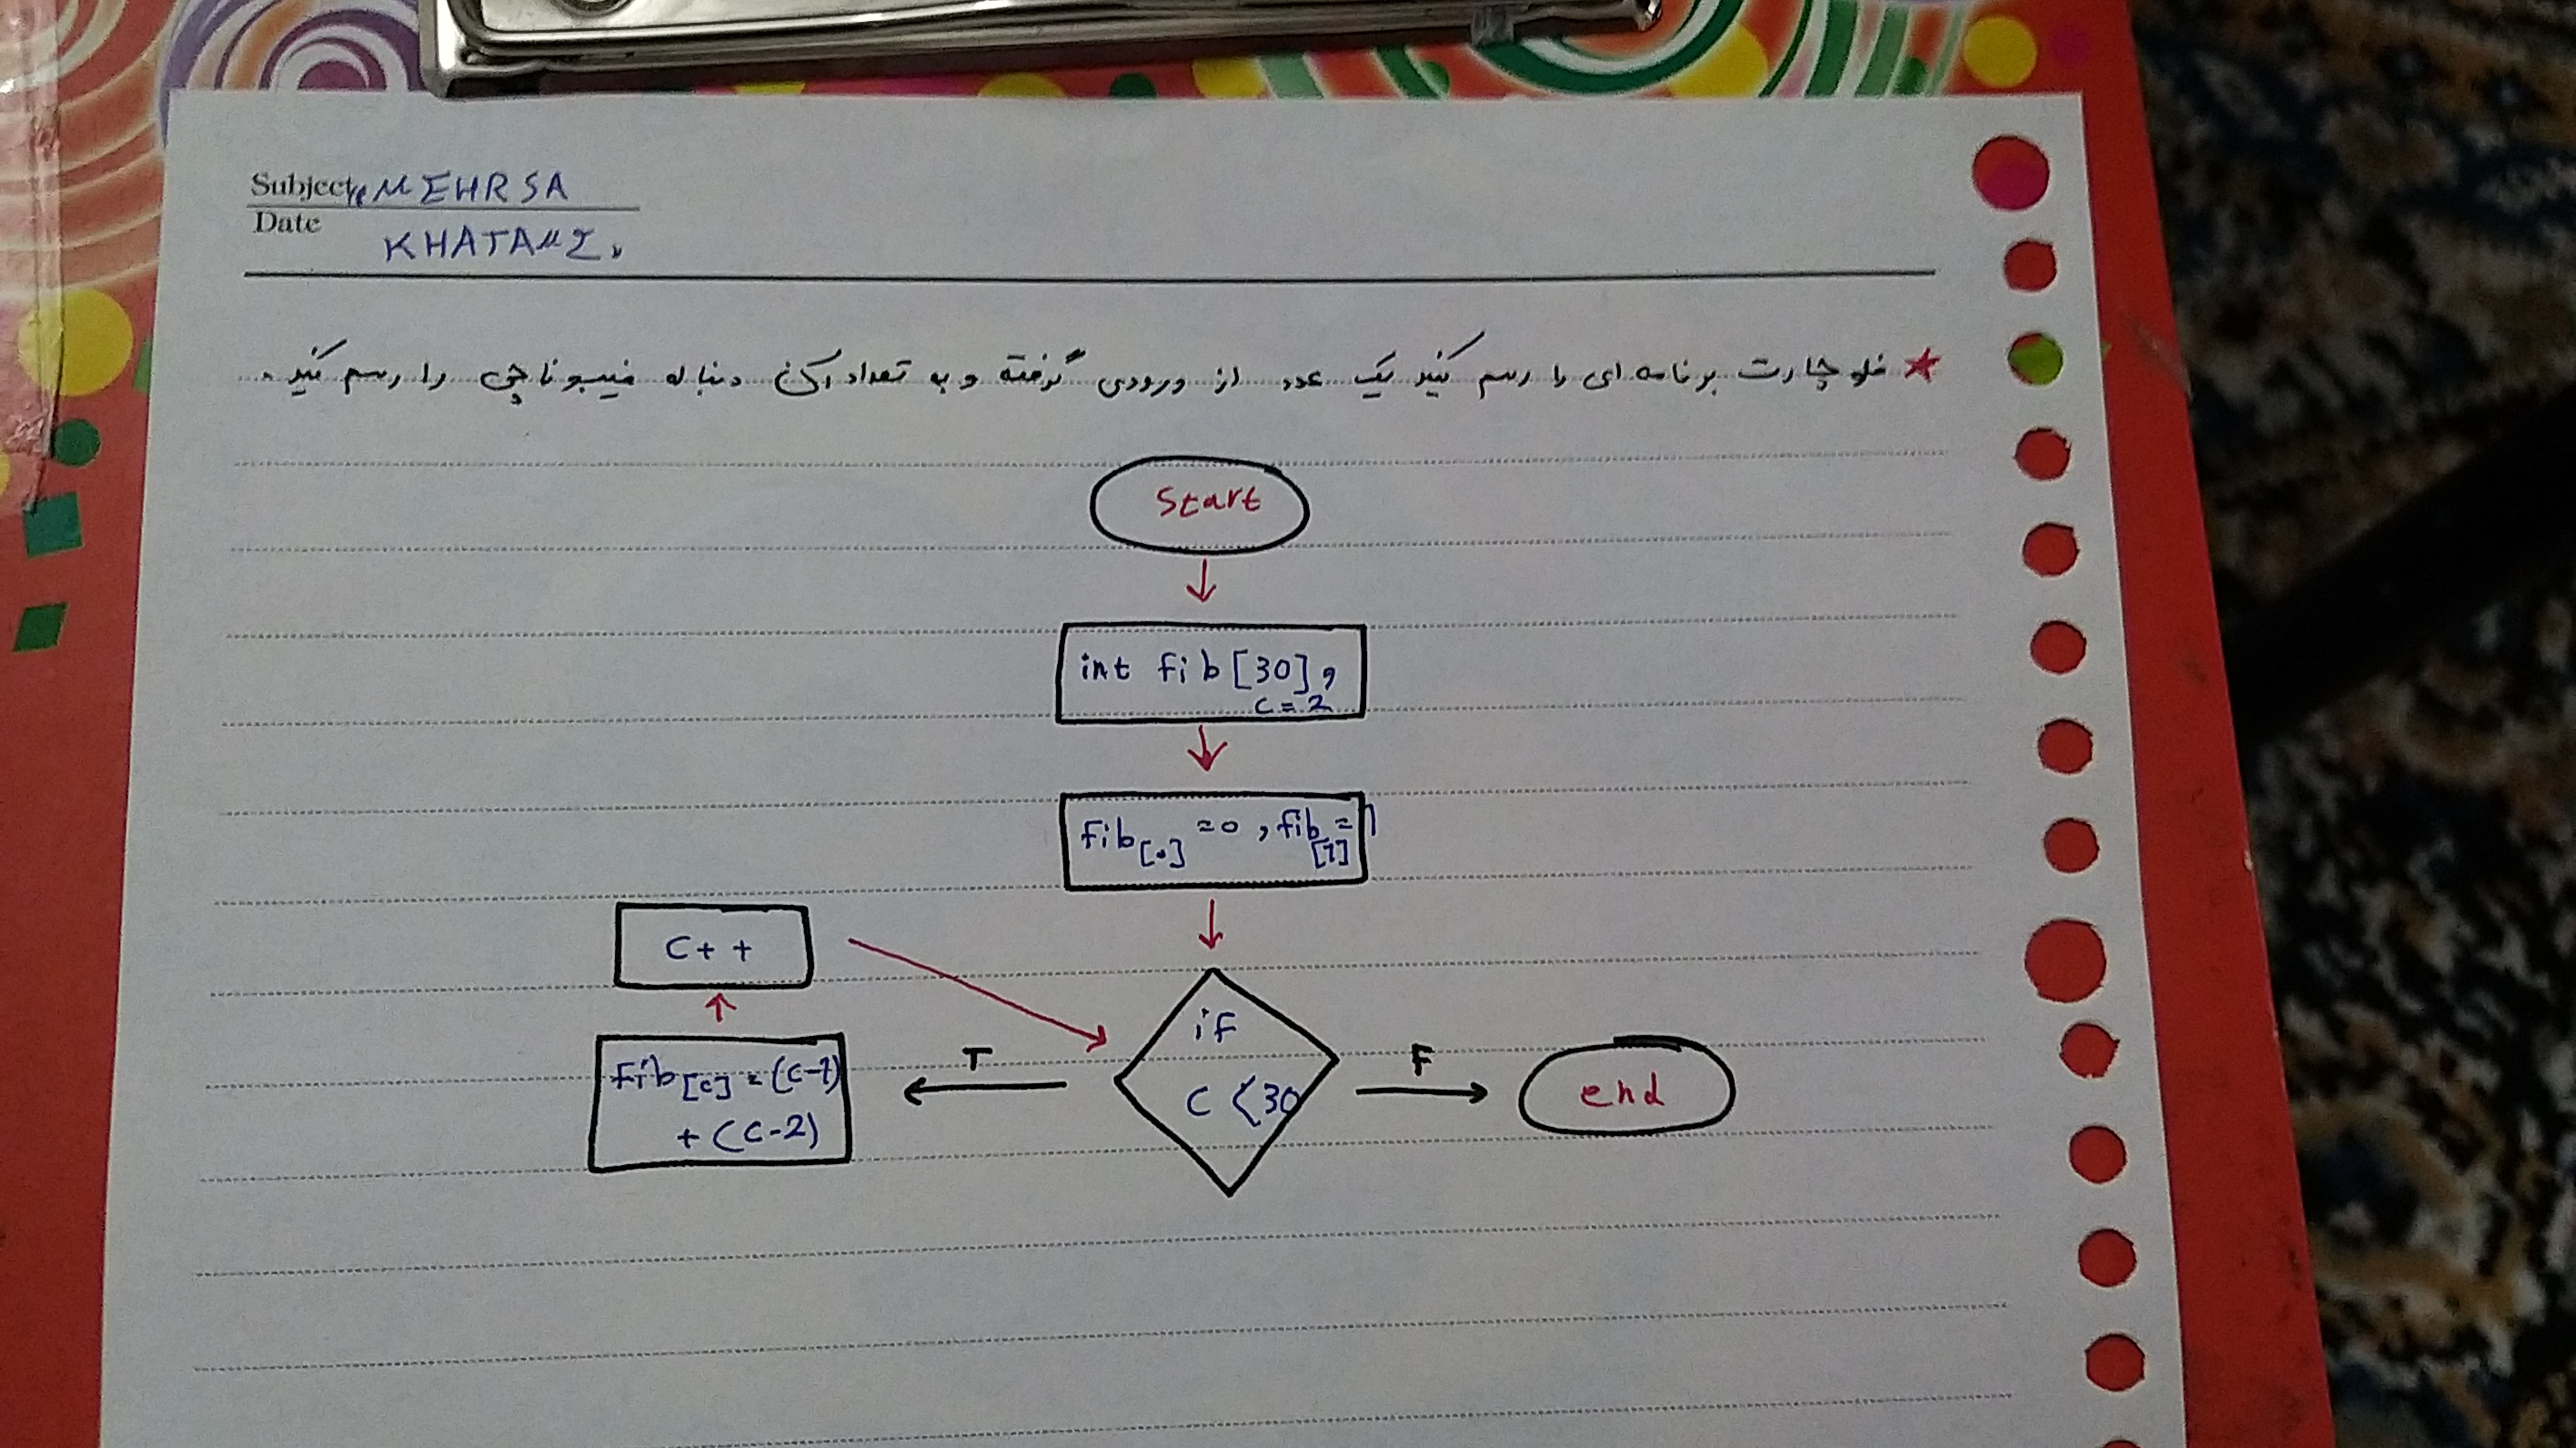 Subject MEHRSA
Date KHATAMI
★ فلوچارت برنامه ای را رسم کنید که یک عدد از ورودی گرفته و به تعداد آن دنباله فیبوناچی را رسم کنید
Start
int fib[30],
c=2
fib[0]=0, fib[1]=1
if
c<30
T
F
fib[c]=(c-1)
+(c-2)
c++
end